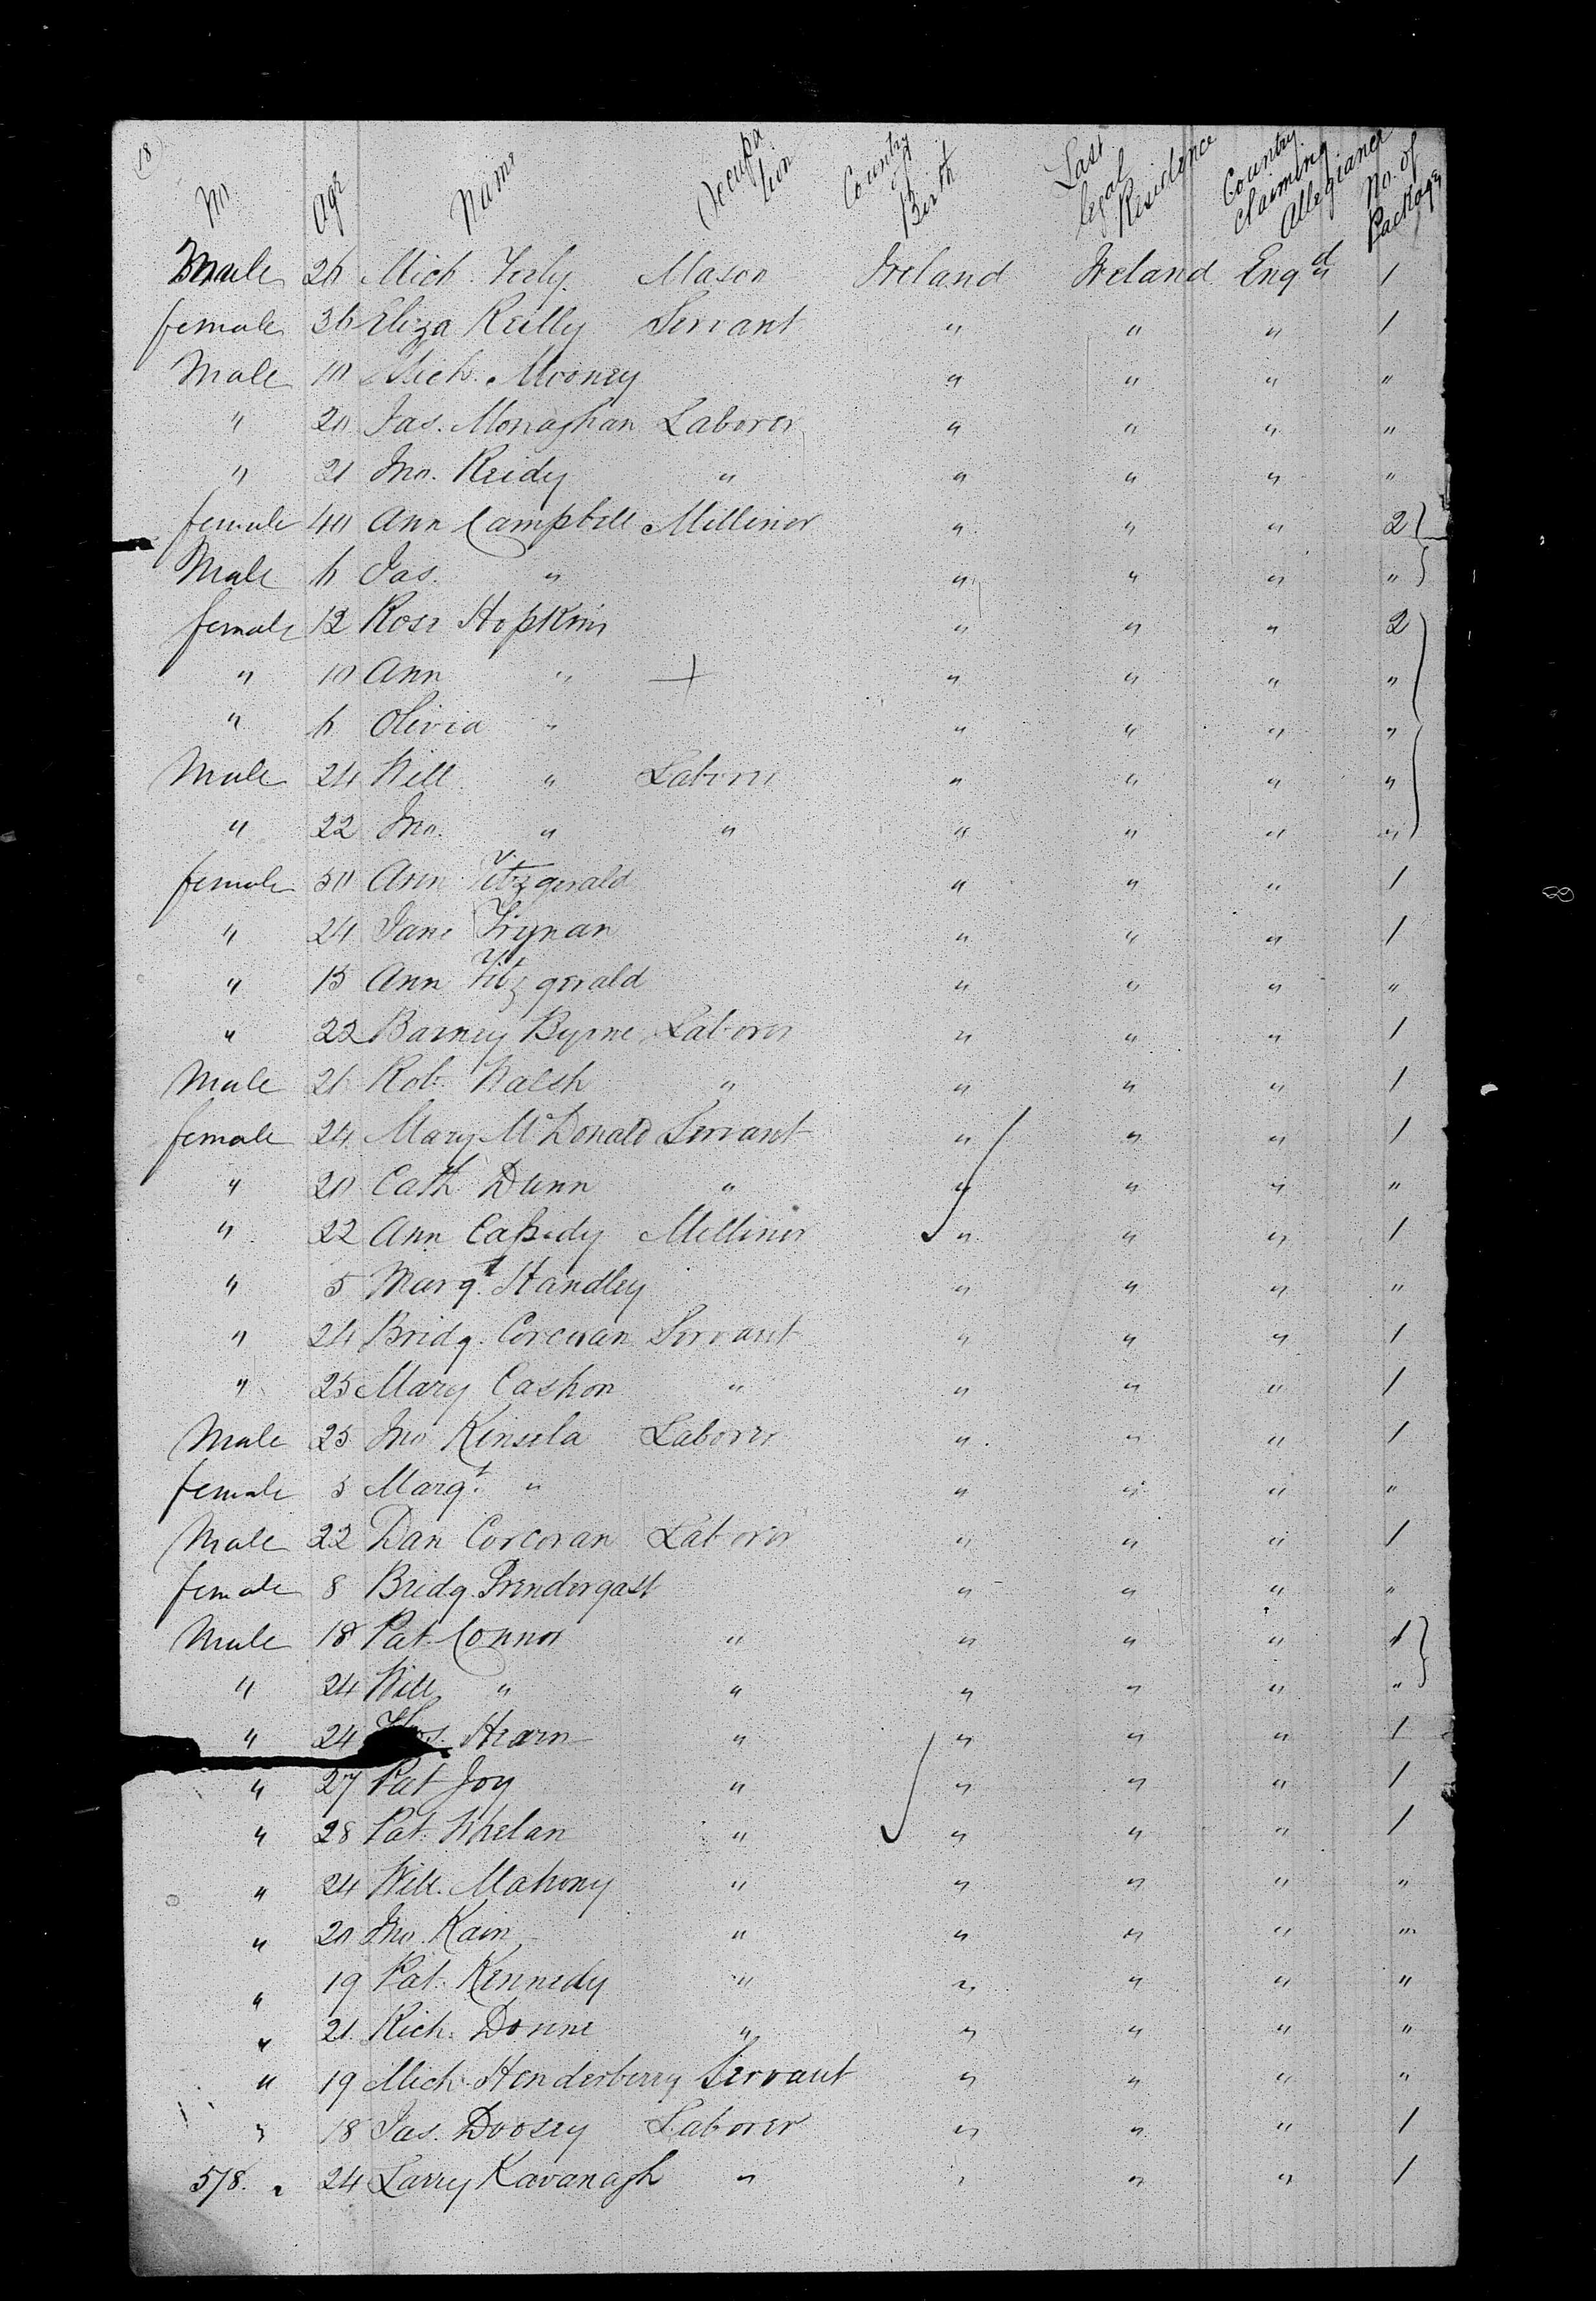 18
No Age Name Occupa tion Country of Birth Last legal Residence Country Claiming Allegiance No. of Package
Male 26 Mich. Mason Ireland Ireland Engd " 1
female 36 Eliza Reilly Servant " " " 1
Male 10 Mich. Mooney " " " "
" 20 Jas. Monaghan Laborer " " " "
" 21 Jno. Reidy " " " " "
female 40 Ann Campbell Milliner " " " 2
Male 6 Jas. " " " " "
female 12 Rose Hopkins " " " 2
" 10 Ann " + " " " "
" 6 Olivia " " " " "
Male 24 Will " Laborer " " " "
" 22 Jno. " " " " " "
female 50 Ann Fitzgerald " " " 1
" 24 Jane " " " 1
" 15 Ann Fitzgerald " " " "
" 22 Barney Byrne Laborer " " " 1
Male 26 Rob. Walsh " " " " 1
female 24 Mary McDonald Servant " " " 1
" 20 Cath Dunn " " " " "
" 22 Ann Cassidy Milliner " " " 1
" 5 Margt. Standley " " " "
" 24 Bridg. Corcoran Servant " " " 1
" 25 Mary Cashon " " " " 1
Male 25 Jno Kinsela Laborer " " " 1
female 5 Margt. " " " " "
Male 22 Dan Corcoran Laborer " " " 1
female 8 Bridg. Prendergast " " " "
Male 18 Pat. Connor " " " " 1
" 24 Will " " " " " "
" 24 Thos. Hearn " " " " 1
" 27 Pat Joy " " " " 1
" 28 Pat. Whelan " " " " 1
" 24 Will. Mahony " " " " "
" 20 Jno. Kain " " " " "
" 19 Pat. Kennedy " " " " "
" 21 Rich. Doune " " " " "
" 19 Mich. Henderberry Servant " " " "
" 18 Jas. Doosey Laborer " " " 1
578. " 24 Larry Kavanagh " " " " 1